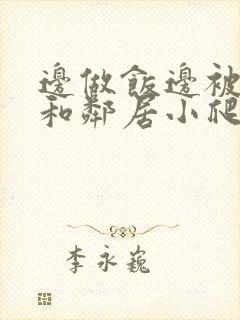 邊做飯邊被
和鄰居小爬
李永巍